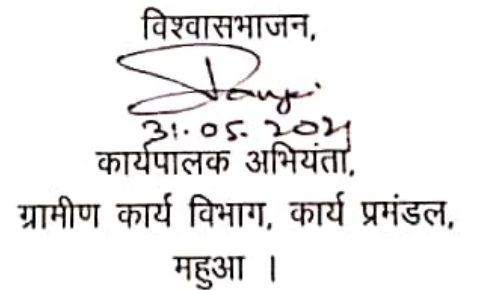 विश्वासभाजन,
31.05.2021
कार्यपालक अभियंता,
ग्रामीण कार्य विभाग, कार्य प्रमंडल,
महुआ ।